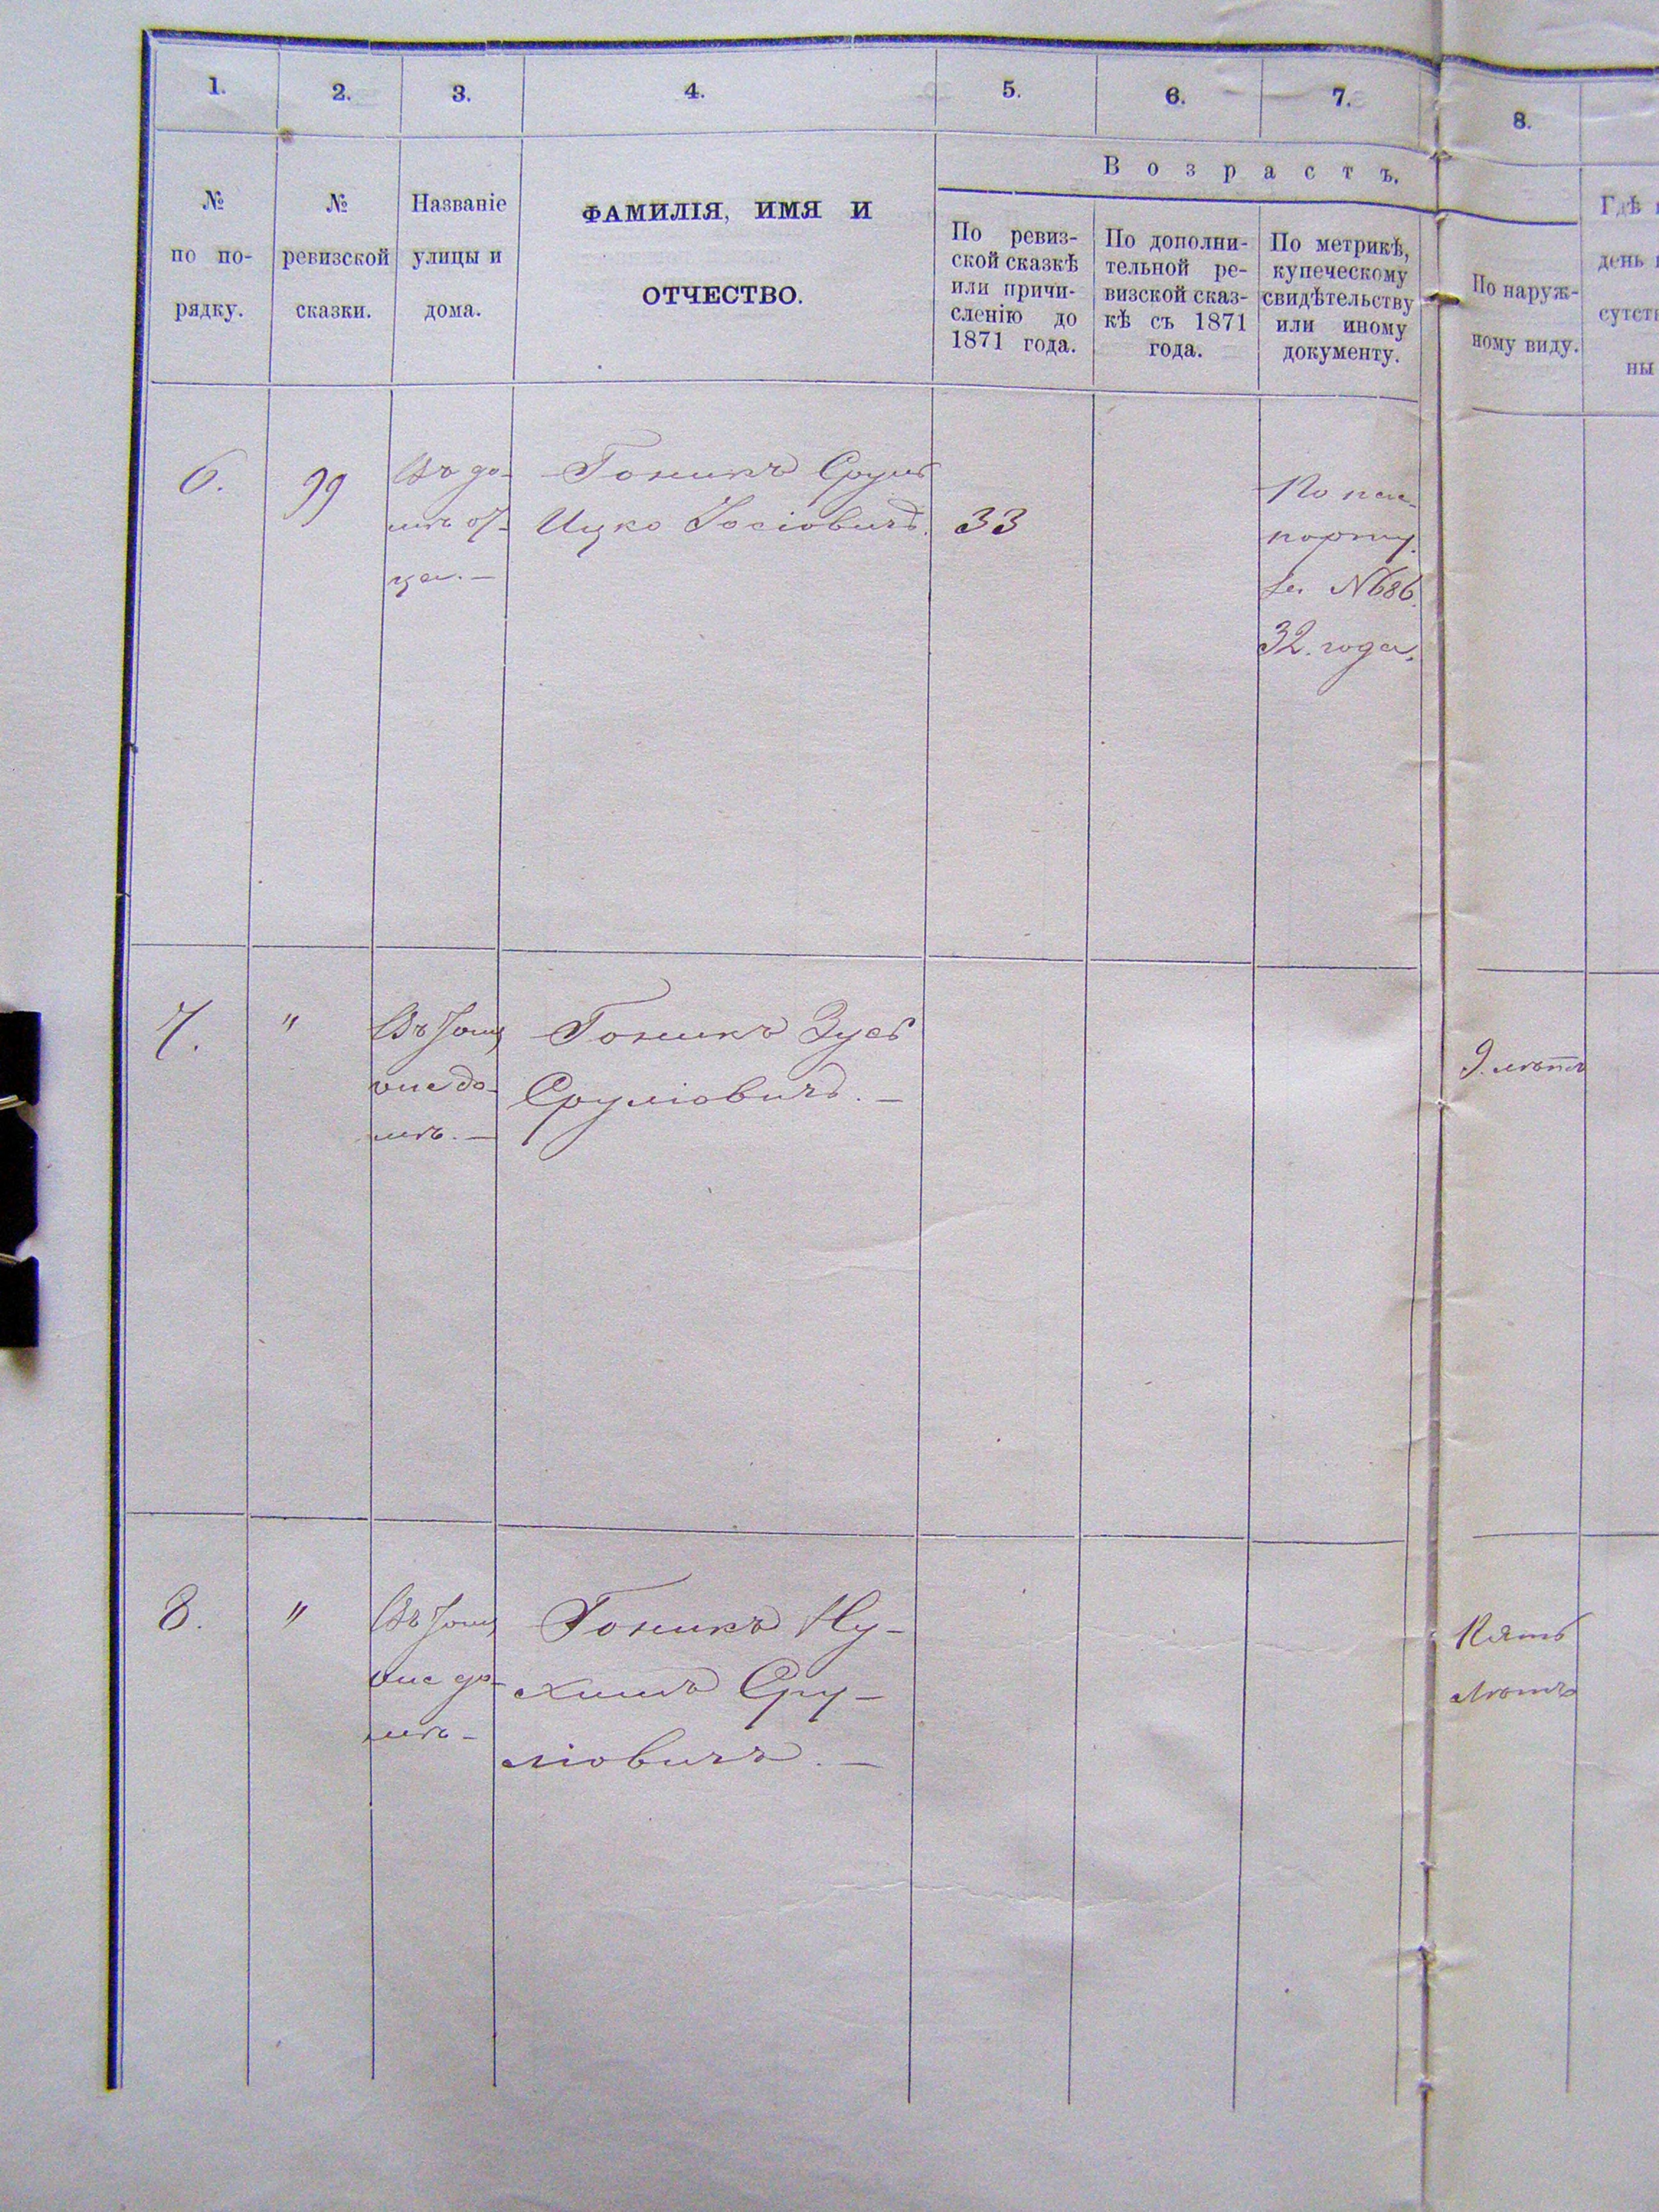 1.
2.
3.
4.
5.
6.
7.
8.
В о з р а с т ъ.
№
по по-
рядку.
№
ревизской
сказки.
Названіе
улицы и
дома.
ФАМИЛІЯ, ИМЯ И
ОТЧЕСТВО.
По ревиз-
ской сказкѣ
или причи-
сленію до
1871 года.
По дополни-
тельной ре-
визской сказ-
кѣ съ 1871
года.
По метрикѣ,
купеческому
свидѣтельству
или иному
документу.
По наруж-
ному виду.
Гдѣ
день
сутств
ны
6.
99
Въ до-
мѣ от-
ца. —
Гоникъ Сруль
Ицко Іосіовичъ.
33
По пас-
порту
за №686.
32. года.
7.
"
Въ томъ
же до-
мѣ. —
Гоникъ Зусь
Сруліовичъ. —
9. лѣтъ
8.
"
Въ томъ
же до-
мѣ —
Гоникъ Ну-
химъ Сру-
ліовичъ. —
Пять
лѣтъ